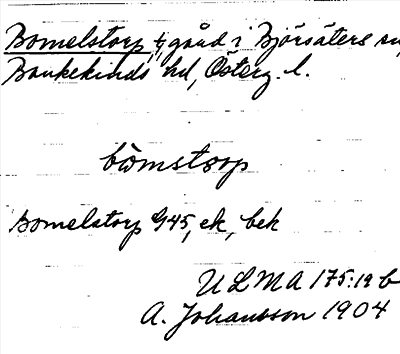 Bomelstorp, gård i Björsäters sn,
Bankekinds hd, Österg. l.
bòmstorp
Bomelstorp G45, ek, bek
ULMA 175:19 b
A. Johansson 1904